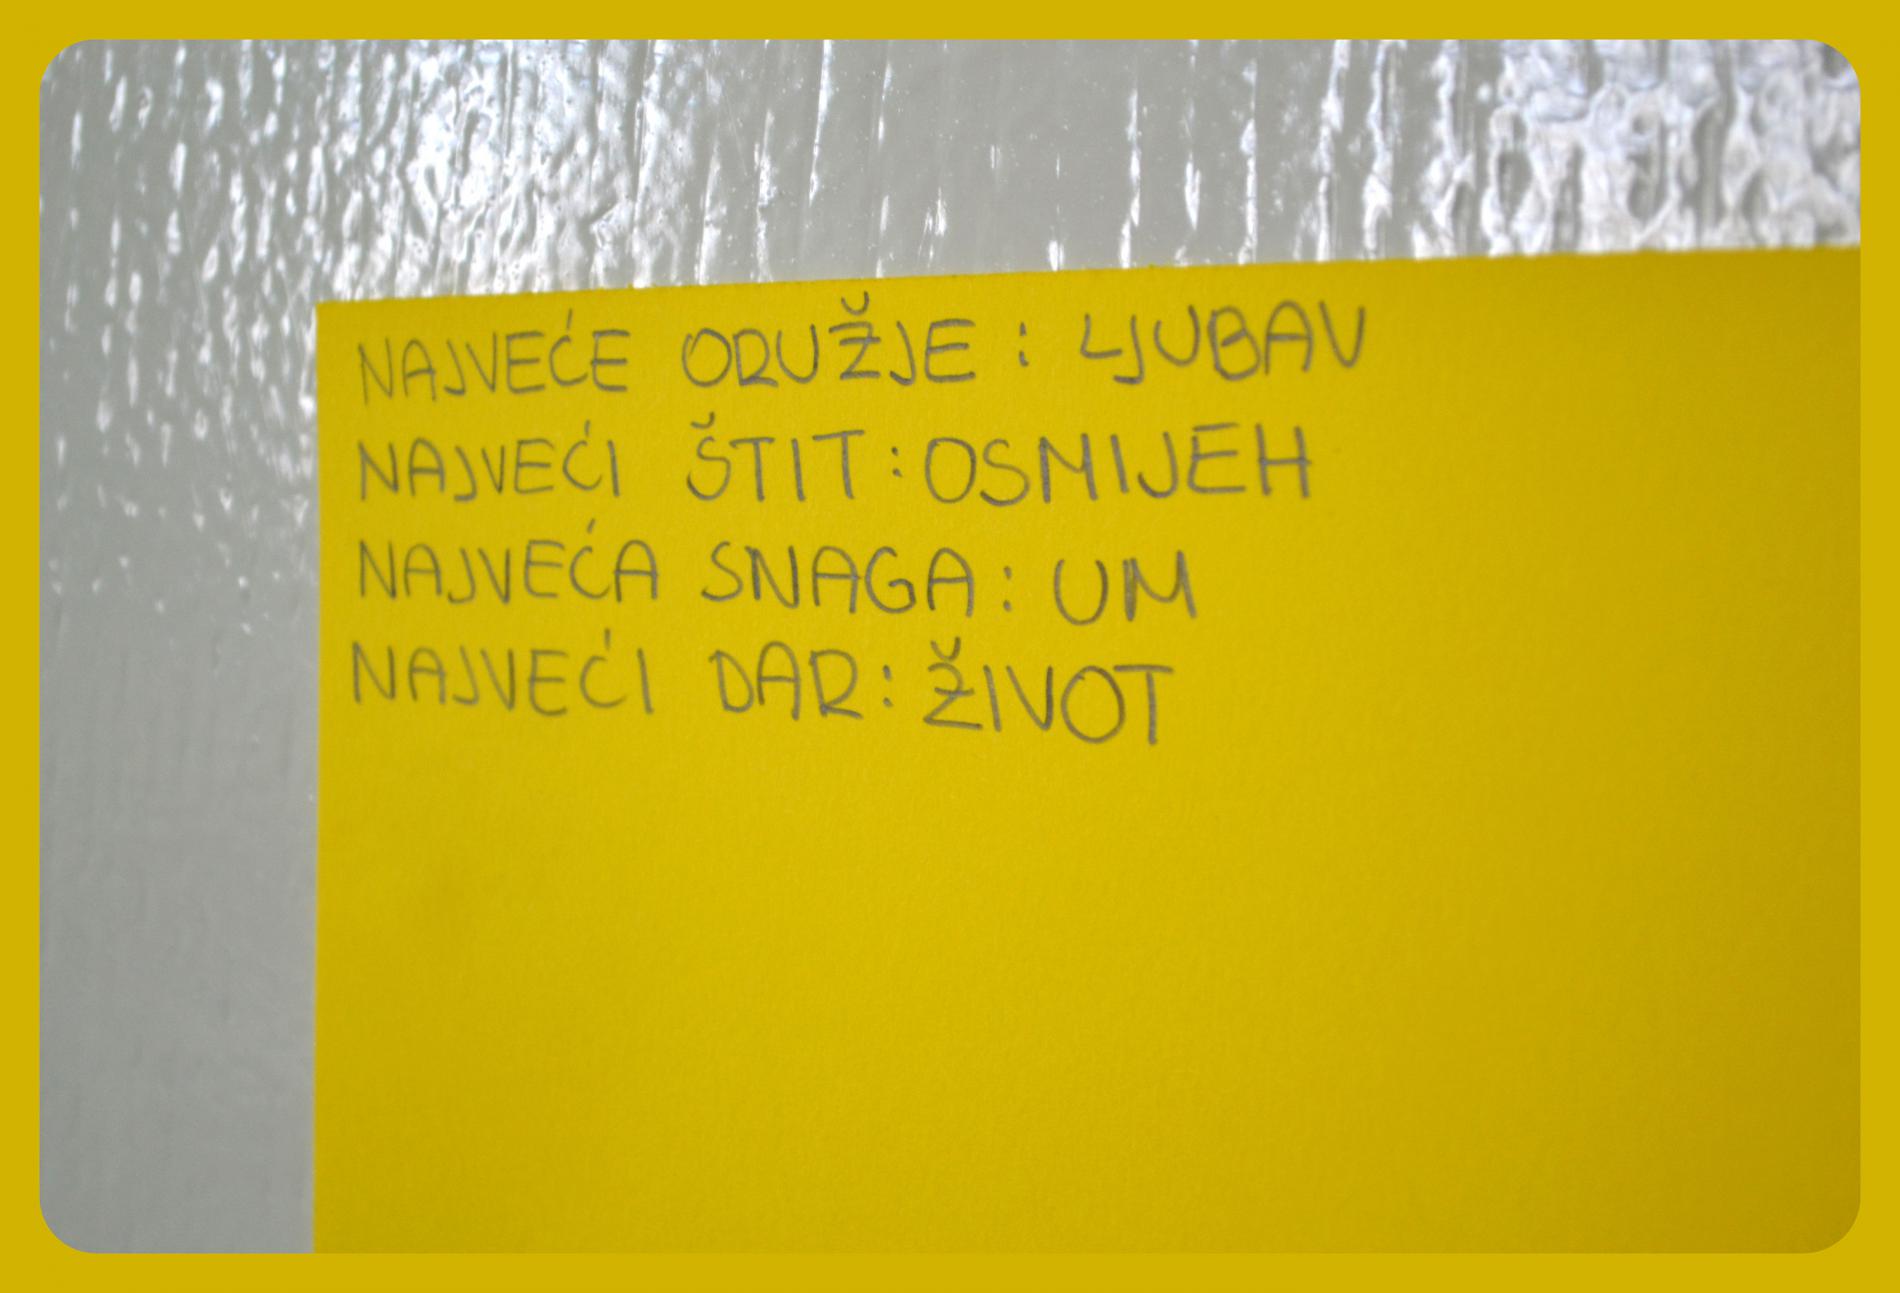 NAJVEĆE ORUŽJE : LJUBAV
NAJVEĆI ŠTIT : OSMIJEH
NAJVEĆA SNAGA : UM
NAJVEĆI DAR : ŽIVOT